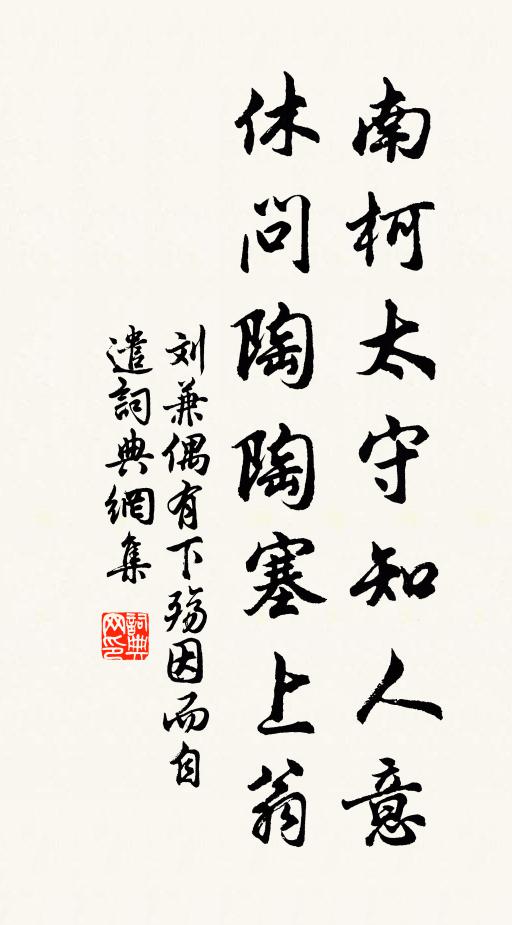 南柯太守知人意
休问陶陶塞上翁
刘兼偶有下殇因而自
遣詞典網集
詞典
网印